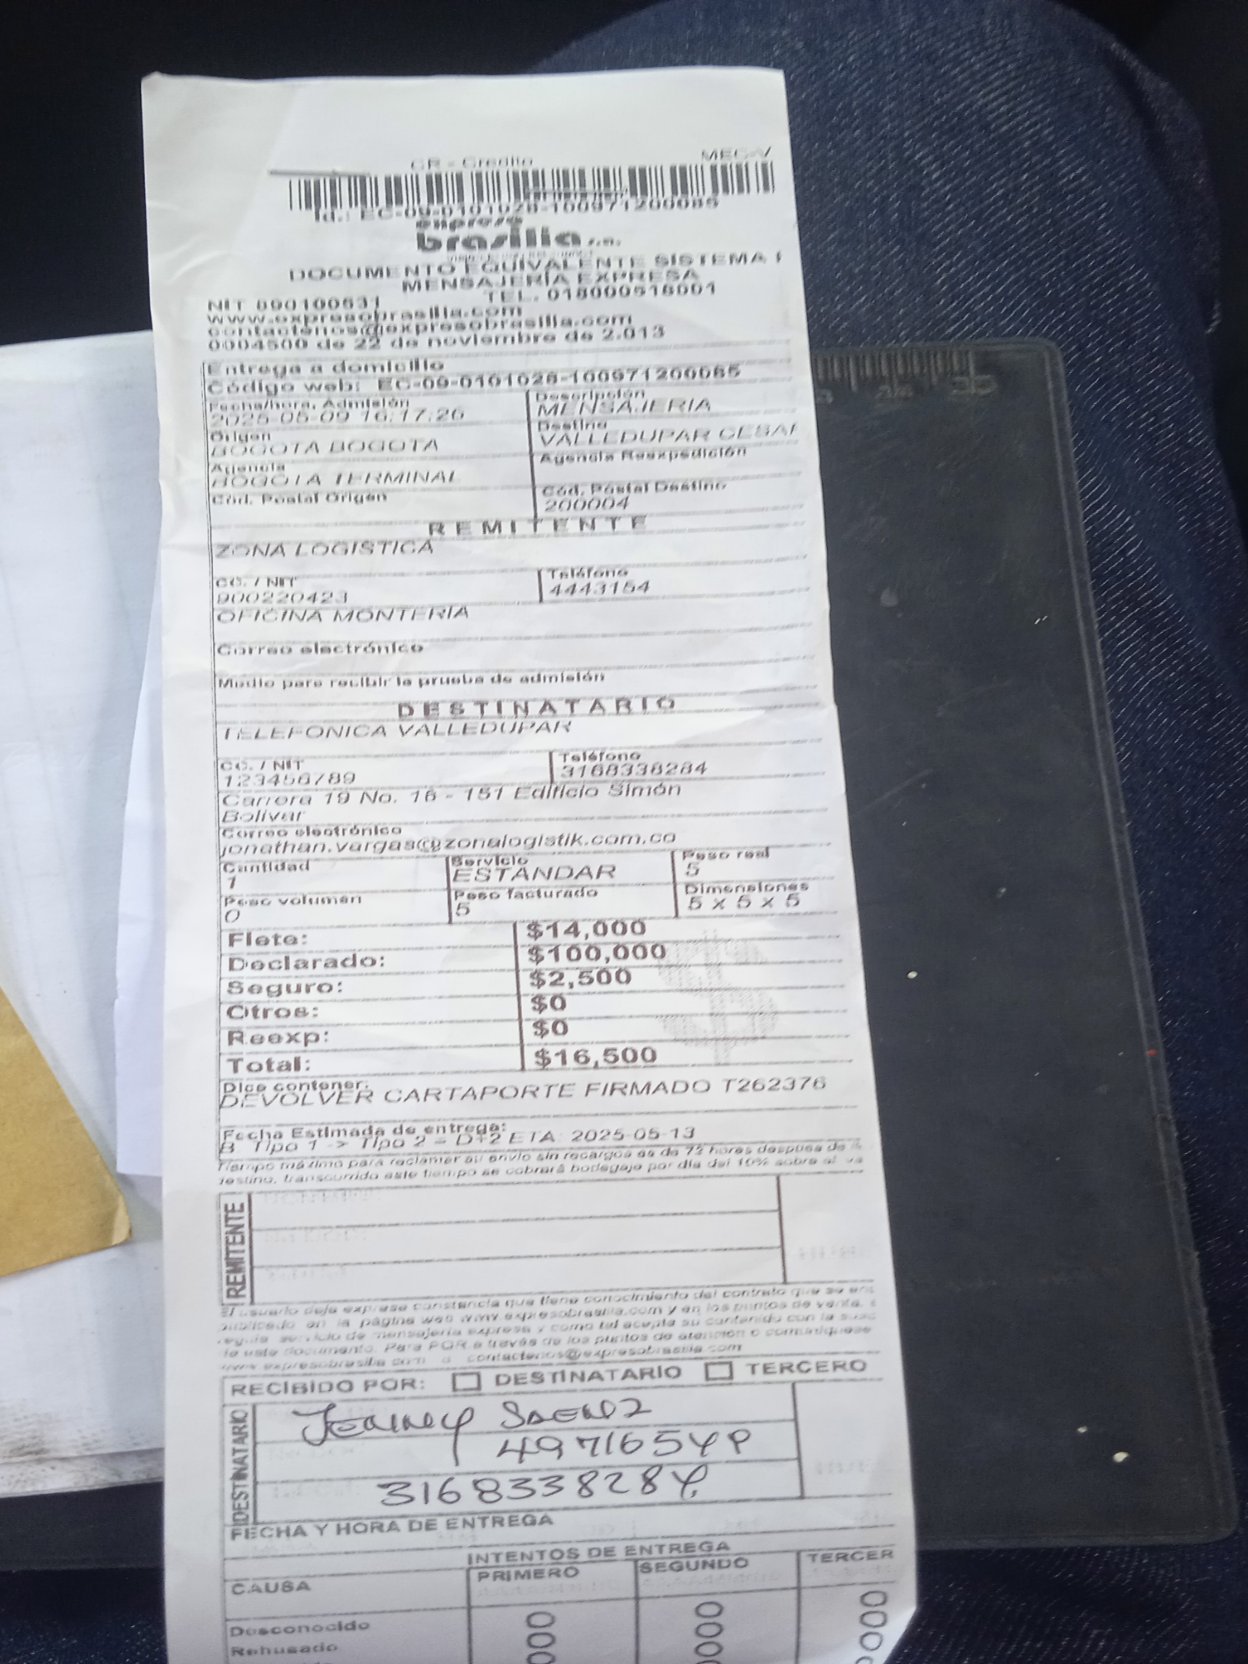 CR - Credito
MEC-V
Id.: EC-09-0101028-100971200085
expreso
brasilia s.a.
DOCUMENTO EQUIVALENTE SISTEMA
MENSAJERÍA EXPRESA
NIT 890100531 TEL. 018000518001
www.expresobrasilia.com
contactenos@expresobrasilia.com
0004500 de 22 de noviembre de 2.013
Entrega a domicilio
Código web: EC-09-0101028-100971200085
Fecha/hora, Admisión Descripción
2025-05-09 16:17:26 MENSAJERIA
Origen Destino
BOGOTA BOGOTA VALLEDUPAR CESAR
Agencia Agencia Reexpedición
BOGOTA TERMINAL
Cód. Postal Origen Cód. Postal Destino
200004
REMITENTE
ZONA LOGISTICA
CC. / NIT Teléfono
900220423 4443154
OFICINA MONTERIA
Correo electrónico
Medio para recibir la prueba de admisión
DESTINATARIO
TELEFONICA VALLEDUPAR
CC. / NIT Teléfono
123456789 3168338284
Carrera 19 No. 16 - 151 Edificio Simón
Bolívar
Correo electrónico
jonathan.vargas@zonalogistik.com.co
Cantidad Servicio Peso real
1 ESTANDAR 5
Peso volumen Peso facturado Dimensiones
0 5 5 x 5 x 5
Flete: $14,000
Declarado: $100,000
Seguro: $2,500
Otros: $0
Reexp: $0
Total: $16,500
Dice contener:
DEVOLVER CARTAPORTE FIRMADO T262376
Fecha Estimada de entrega:
B Tipo 1 -> Tipo 2 - D+2 ETA: 2025-05-13
Tiempo máximo para reclamar su envío sin recargos es de 72 horas después de
destino, transcurrido este tiempo se cobrará bodegaje por día del 10% sobre el
REMITENTE
El usuario deja expresa constancia que tiene conocimiento del contrato que se
publicado en la página web www.expresobrasilia.com y en los puntos de venta,
regula servicio de mensajería expresa y como tal acepta su contenido con la
de este documento. Para PQR a través de los puntos de atención o comuníquese
www.expresobrasilia.com o contactenos@expresobrasilia.com
RECIBIDO POR: DESTINATARIO TERCERO
DESTINATARIO
Jenney Saenz
49716549
3168338284
FECHA Y HORA DE ENTREGA
INTENTOS DE ENTREGA
CAUSA PRIMERO SEGUNDO TERCER
Desconocido
Rehusado